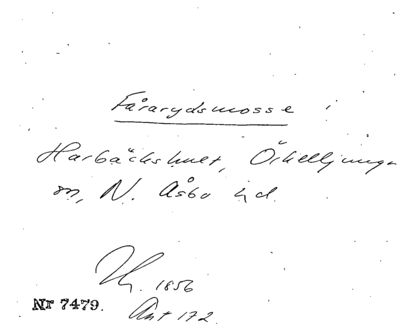 Fårarydsmosse i
Harbäckshult, Örkelljunga
sn, N. Åsbo hd.
1856
Nr 7479. Ant 172